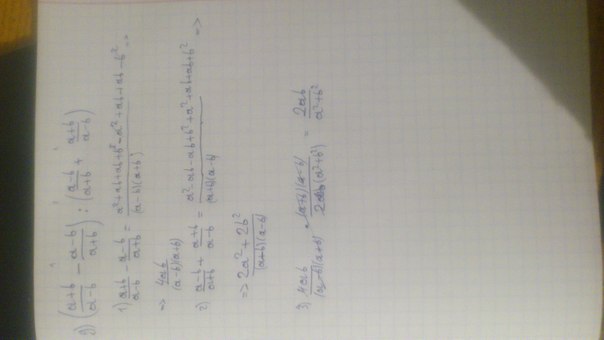 g) ((a+b)/(a-b) - (a-b)/(a+b)) : ((a-b)/(a+b) + (a+b)/(a-b))
1) (a+b)/(a-b) - (a-b)/(a+b) = (a²+ab+ab+b²-a²+ab+ab-b²)/((a-b)(a+b)) =>
=> 4ab/((a-b)(a+b))
2) (a-b)/(a+b) + (a+b)/(a-b) = (a²-ab-ab+b²+a²+ab+ab+b²)/((a+b)(a-b)) =>
=> (2a²+2b²)/((a+b)(a-b))
3) 4ab/((a-b)(a+b)) · ((a+b)(a-b))/(2(a²+b²)) = 2ab/(a²+b²)